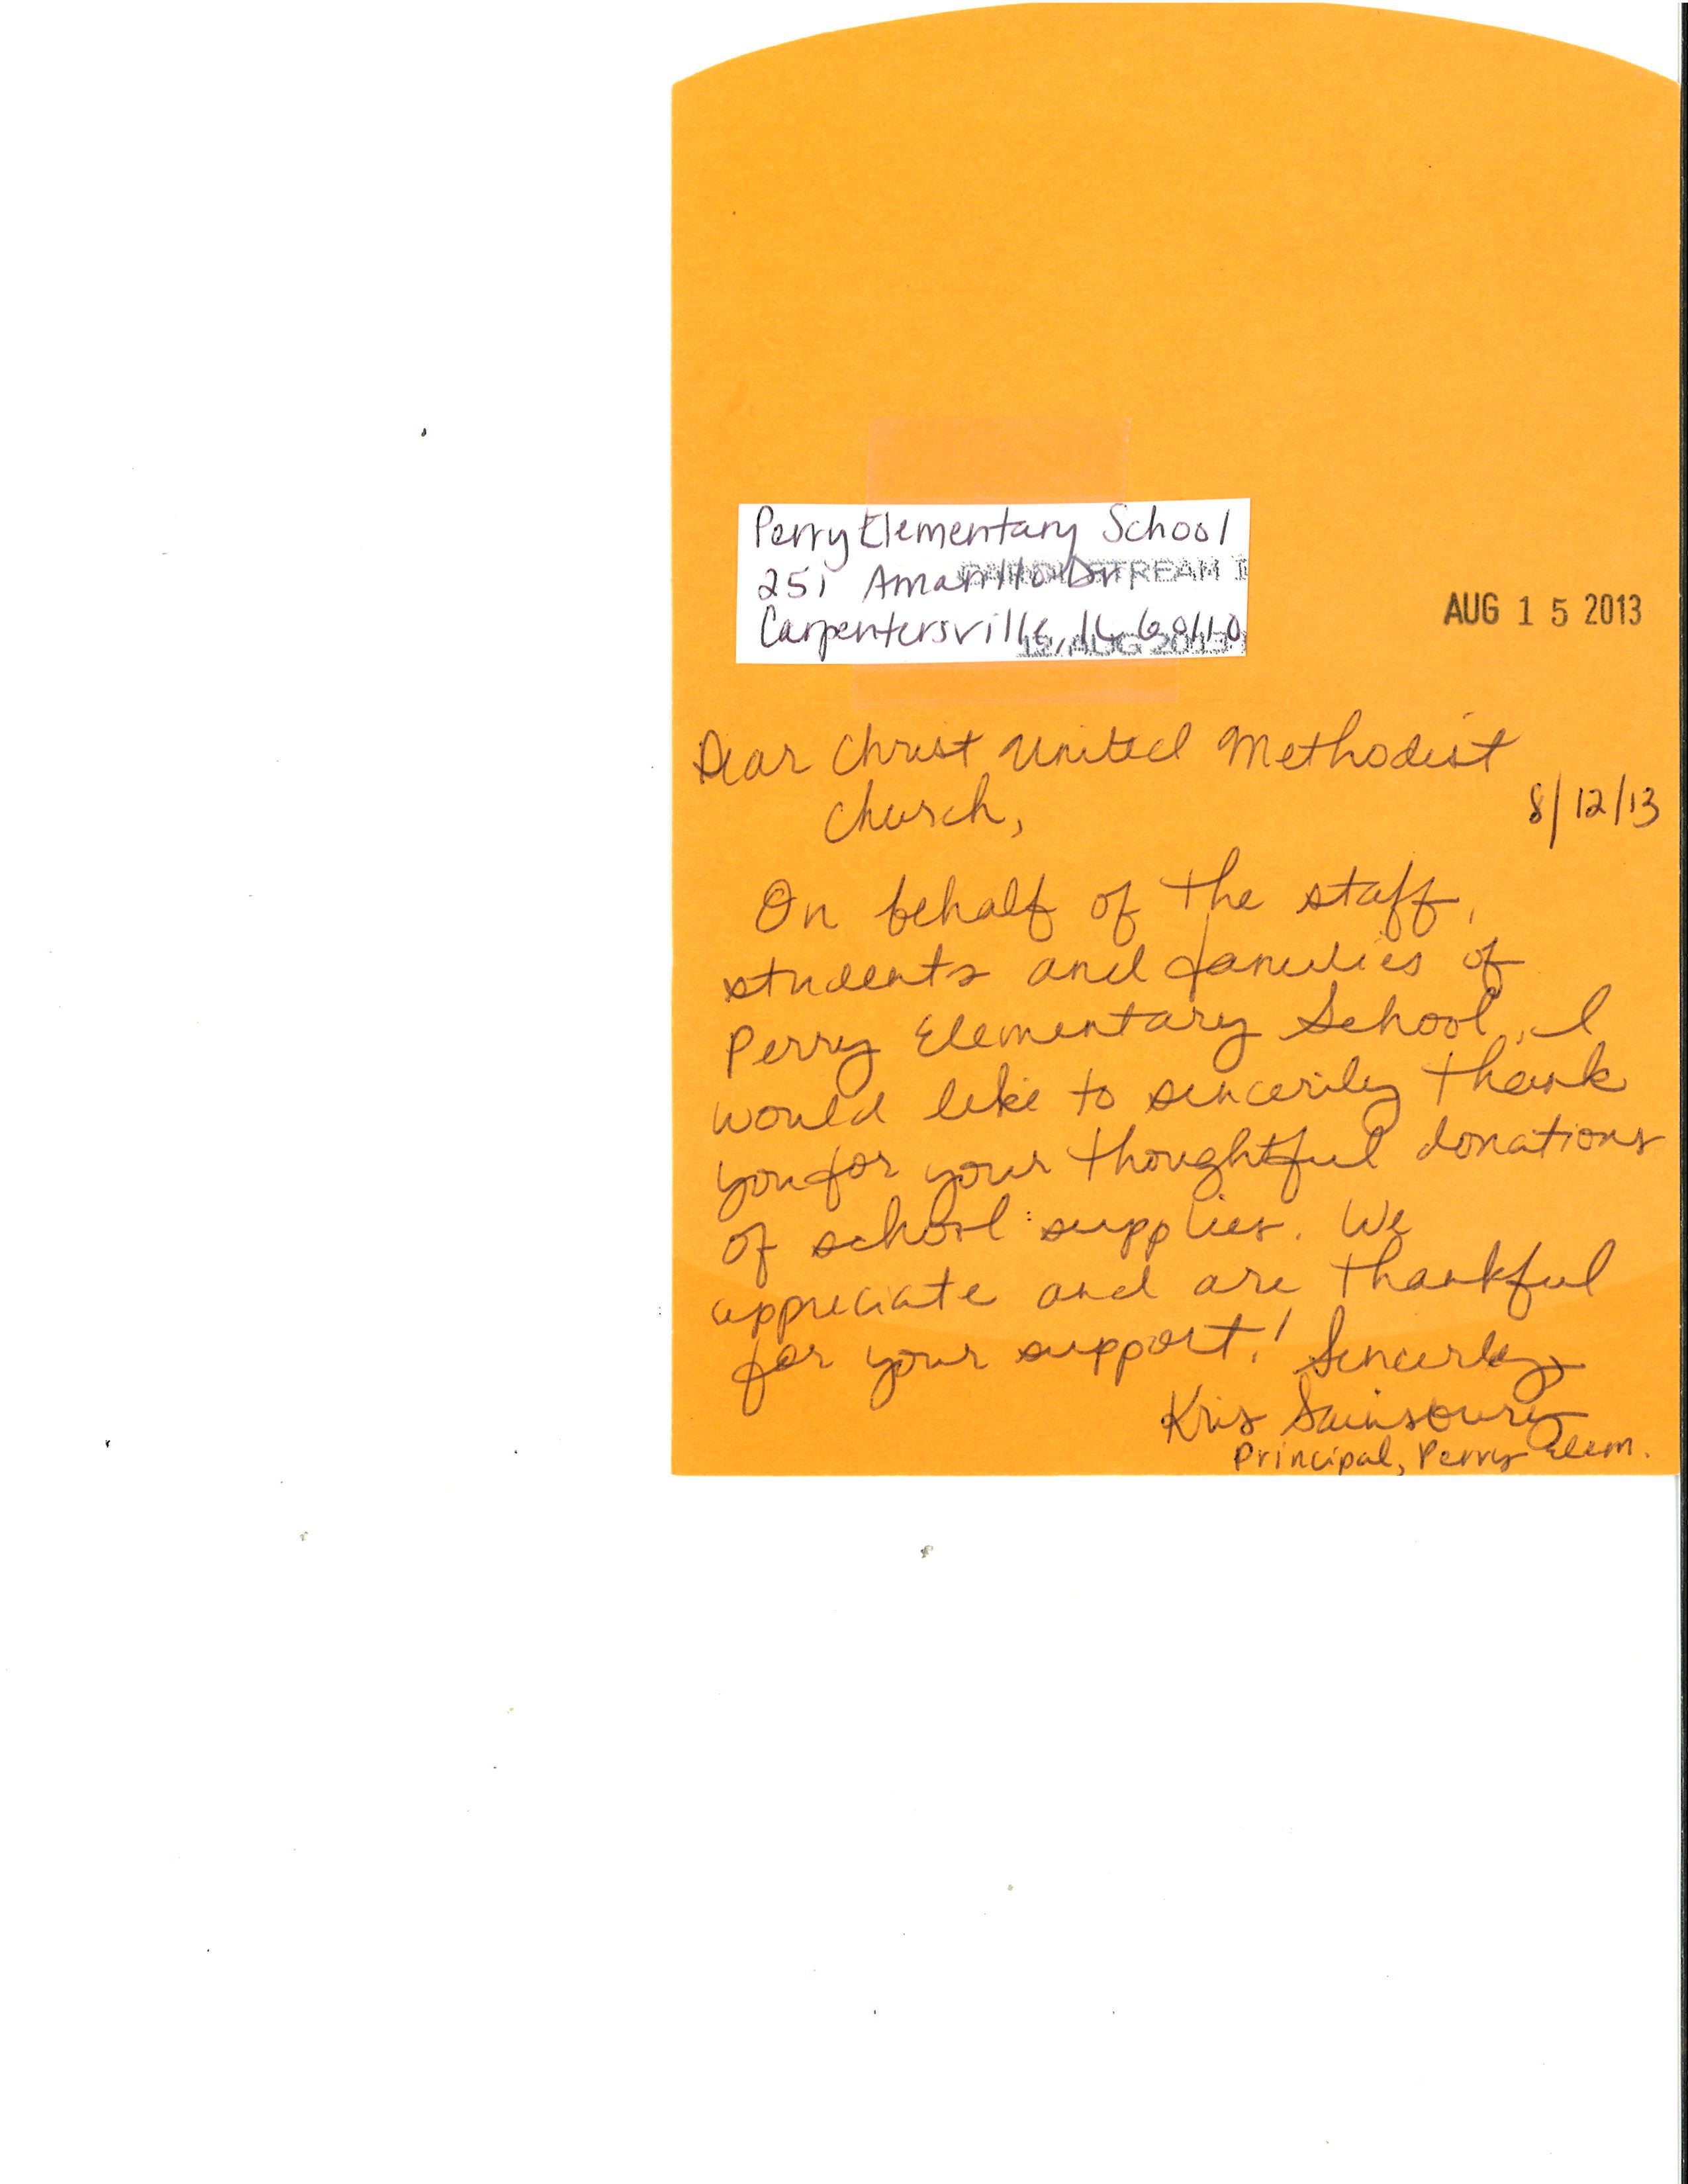 Perry Elementary School
251 Amarillo Dr.
STREAM
Carpentersville, IL 60110
12 AUG 2013
AUG 15 2013
Dear Christ United Methodist
Church,
8/12/13
On behalf of the staff,
students and families of
Perry Elementary School, I
would like to sincerily thank
you for your thoughtful donations
of school supplies. We
appreciate and are thankful
for your support! Sincerly,
Kris Sainsbury
Principal, Perry Elem.